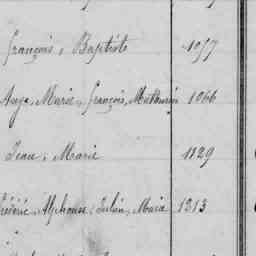 François, Baptiste 1057
Ange, Marie, François, Mathurin 1066
Jean, Marie 1129
Frédéric, Alphonse, Julien, Marie 1213